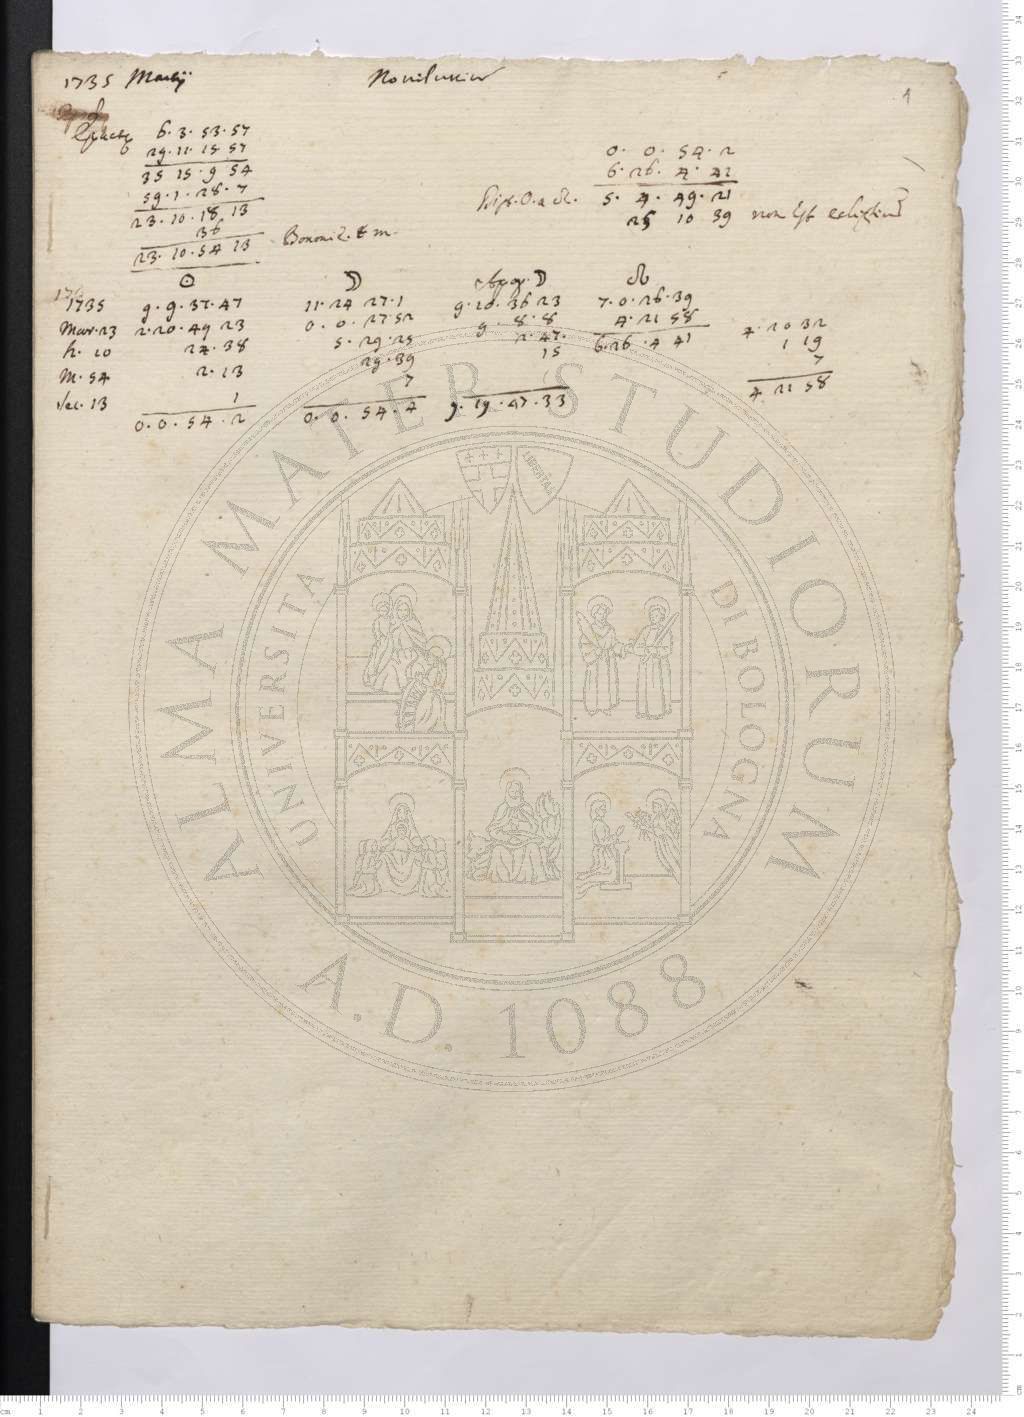 1735 Martij Novilunium
1
Epactę 6. 3. 53. 57
29. 11. 15 57
35 15. 9 54
59. 1. 28. 7
23. 10. 18. 13
36
23. 10. 54 13 Bononiæ t m.
0. 0. 54. 2
6. 26. 4. 41
dist. ☉ a ☊. 5. 4. 49. 21
25 10 39 non est eclipsis
☉ ☽ Apog. ☽ ☊
1735 9. 9. 37. 47 11. 24 27. 1 9. 10. 36 23 7. 0. 26. 39
Mar. 23 2. 20. 49 23 0. 0. 27. 52 9. 8. 8 4. 21 58 4. 20 32
h. 10 24. 38 5. 29. 25 2. 47. 6. 26. 4 41 1 19
M. 54 2. 13 29. 39 15 7
sec. 13 1 7 4. 21 58
0. 0. 54. 2 0. 0. 54. 4 9. 19. 47. 33
ALMA MATER STUDIORUM
UNIVERSITÀ DI BOLOGNA
LIBERTAS
A.D. 1088